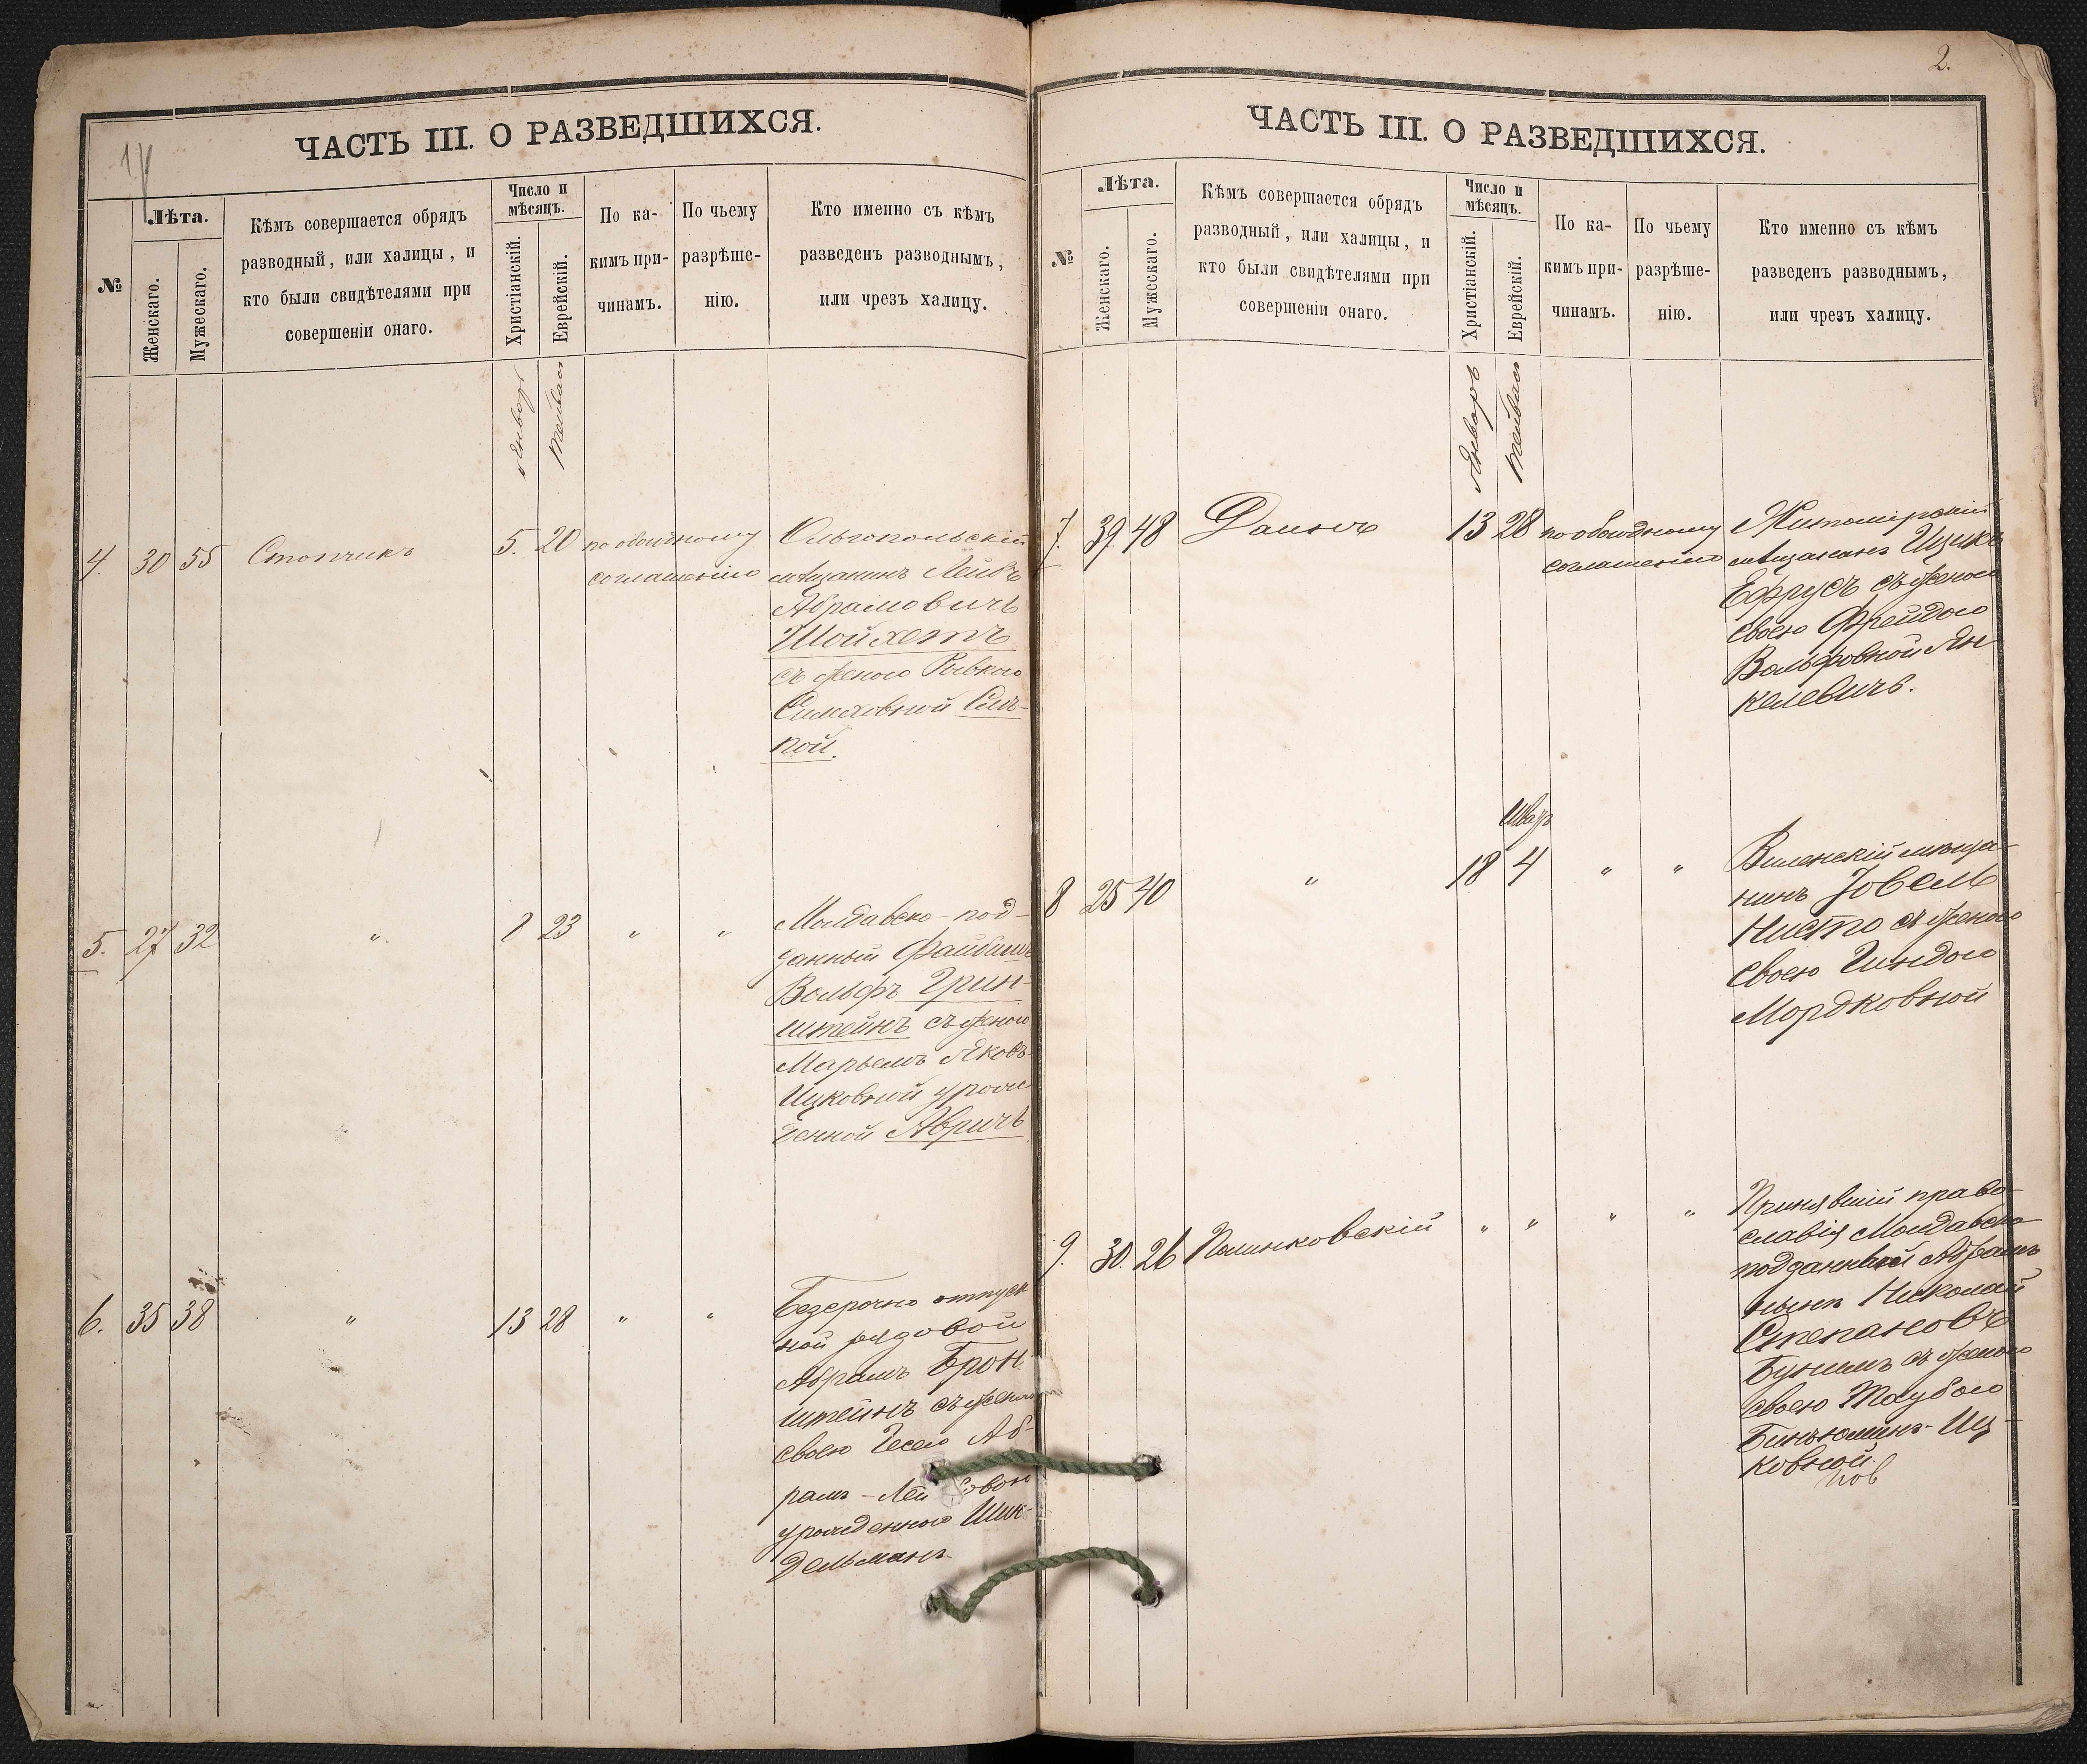 ЧАСТЬ III. О РАЗВЕДШИХСЯ.
№
Лѣта.
Женскаго.
Мужескаго.
Кѣмъ совершается обрядъ
разводный, или халицы, и
кто были свидѣтелями при
совершеніи онаго.
Число и
мѣсяцъ.
Христіанскій.
Еврейскій.
По ка-
кимъ при-
чинамъ.
По чьему
разрѣше-
нію.
Кто именно съ кѣмъ
разведенъ разводнымъ,
или чрезъ халицу.
Январь
Тейвасъ
4. 30 55 Столчикъ 5. 20 по обоюдному
соглашенію
Ольгопольскій
мѣщанинъ Лейбъ
Абрамовичъ
Шойхетъ
съ женою Ривкою
Симховной
кой.
5. 27 32 " 8 23 " "
Молдавско-под-
данный Файбишъ
Вольфъ Грин-
штейнъ съ женою
Марьемъ Яковъ
Ицковной урож
денной Авричъ
6. 35 38 " 13 28 " "
Безсрочно отпуск
ной рядовой
Абрамъ Брон
штейнъ съ женою
своею Гесею Аб-
рамъ-Лей
урожденною Шин-
дельманъ
2.
ЧАСТЬ III. О РАЗВЕДШИХСЯ.
№
Лѣта.
Женскаго.
Мужескаго.
Кѣмъ совершается обрядъ
разводный, или халицы, и
кто были свидѣтелями при
совершеніи онаго.
Число и
мѣсяцъ.
Христіанскій.
Еврейскій.
По ка-
кимъ при-
чинамъ.
По чьему
разрѣше-
нію.
Кто именно съ кѣмъ
разведенъ разводнымъ,
или чрезъ халицу.
Январь
Тейвасъ
7. 39 48 Даинъ 13 28 по обоюдному
соглашенію
Житомірскій
мѣщанинъ Ицикъ
Ефрусъ съ женою
своею Фрейдою
Вольфовной Ян
келевичъ.
Шватъ
8 25 40 " 18 4 " "
Виленскій мѣща-
нинъ Іовель
Нисто съ женою
своею Гиндою
Мордковной
9. 30. 26 Полинковскій " " " "
Принявшій право-
славія Молдавско
подданный Абрамъ
нынѣ Николай
Степановъ
Бунимъ съ женою
своею Таубою
Биньюминъ-Иц-
ковной